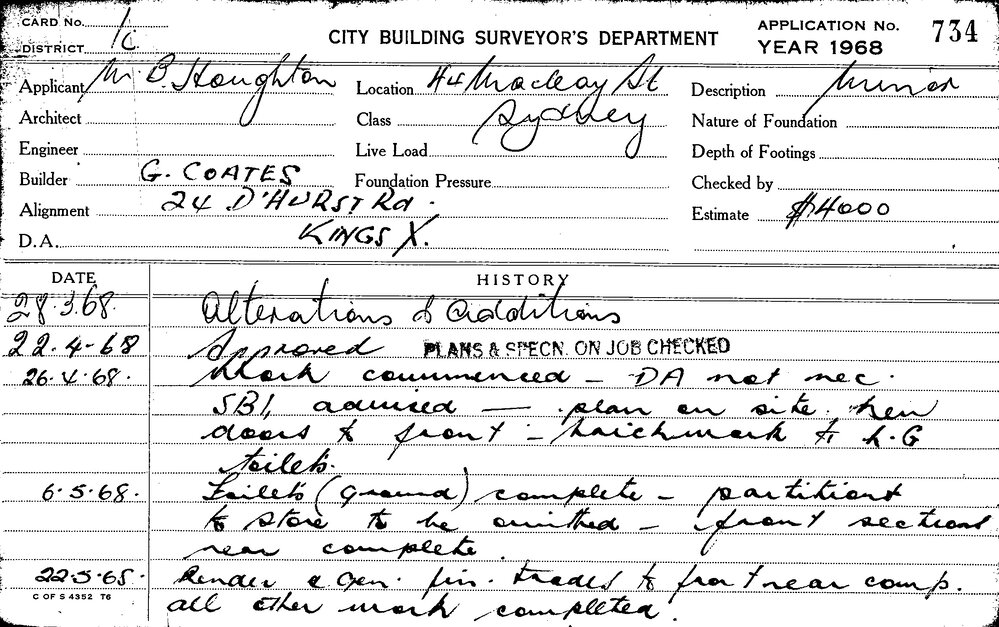 CARD No. 1c
DISTRICT
CITY BUILDING SURVEYOR'S DEPARTMENT
APPLICATION No. 734
YEAR 1968
Applicant Mr B. Houghton
Location 44 Macleay St
Description Minor
Architect
Class Sydney
Nature of Foundation
Engineer
Live Load
Depth of Footings
Builder G. COATES
Foundation Pressure
Checked by
Alignment 24 D'HURST Rd.
Estimate $14000
D.A. KINGS X.
DATE HISTORY
28.3.68. Alterations & additions
22.4-68 Approved PLANS & SPECN. ON JOB CHECKED
26.4.68. Work commenced - DA not nec.
SBI, advised — plan on site. New
doors to front - brickwork to L.G
toilets.
6.5.68. Toilets (Ground) complete - partitions
to store to be omitted - front sections
near complete.
22.5.68. Render & gen. fin. trades to front near comp.
all other work completed.
C OF S 4352 T6